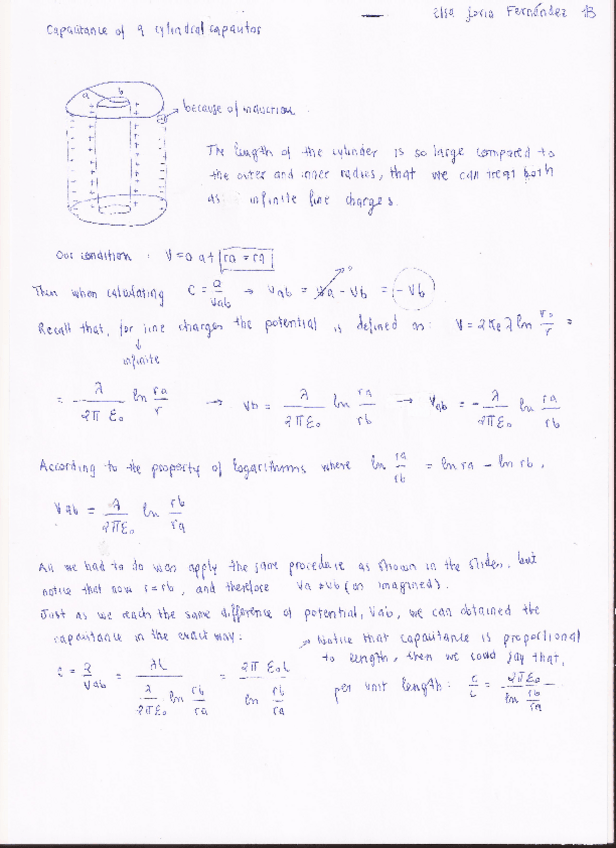 Elsa Soria Fernández 1B
Capacitance of a cylindrical capacitor
a b
because of induction.
The length of the cylinder is so large compared to
the outer and inner radius, that we can treat both
as infinite line charges.
Our condition: V=0 at ra = ra
Then when calculating C = Q/Vab → Vab = Va - Vb = -Vb
0
Recall that, for line charges the potential is defined as: V = 2keλ ln r0/r =
↓
infinite
= λ/2πε₀ ln ra/r → Vb = λ/2πε₀ ln ra/rb → Vab = - λ/2πε₀ ln ra/rb
According to the property of logarithms where ln ra/rb = ln ra - ln rb,
Vab = λ/2πε₀ ln rb/ra
All we had to do was apply the same procedure as shown in the slides, but
notice that now r=rb, and therefore Va Vb (as imagined).
Just as we reach the same difference of potential, Vab, we can obtained the
capacitance in the exact way:
→ Notice that capacitance is proportional
to length, then we could say that,
C = Q/Vab = λL / λ/2πε₀ ln rb/ra = 2πε₀L / ln rb/ra
per unit length: C/L = 2πε₀ / ln rb/ra